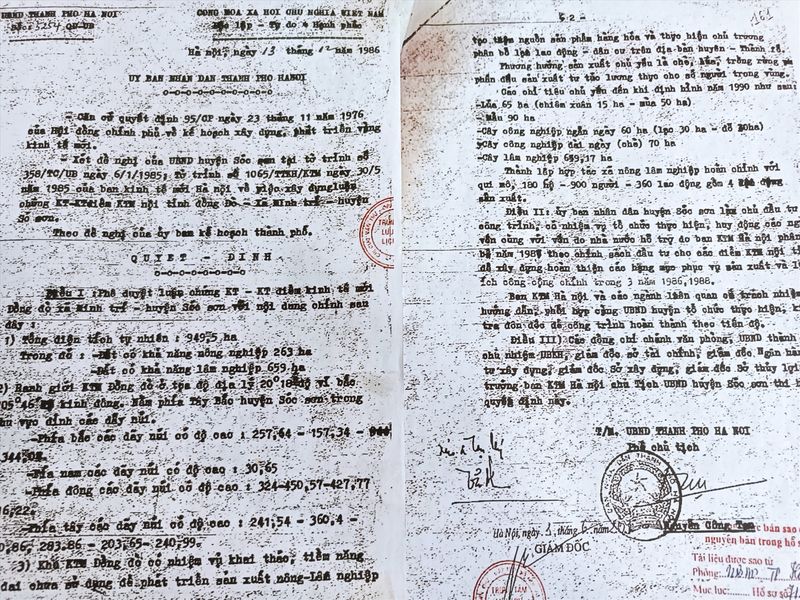 UBND THANH PHO HA NOI
Số: 5254 QĐ-UB
CONG HOA XA HOI CHU NGHIA VIET NAM
Độc lập - Tự do - Hạnh phúc
Hà nội, ngày 13 tháng 12 năm 1986
UY BAN NHAN DAN THANH PHO HANOI
- Căn cứ quyết định 95/CP ngày 23 tháng 11 năm 1976
của Hội đồng chính phủ về kế hoạch xây dựng, phát triển vùng
kinh tế mới.
- Xét đề nghị của UBND huyện Sóc sơn tại tờ trình số
358/TC/UB ngày 6/1/1985; Tờ trình số 1065/TTKH/KTM ngày 30/5
năm 1985 của ban kinh tế mới Hà nội về việc xây dựng luận
chứng KT-KT điểm KTM nội tỉnh đồng Đò - Xã Minh trí - huyện
Sóc sơn.
Theo đề nghị của ủy ban kế hoạch thành phố.
QUYET - ĐINH
Điều I : Phê duyệt luận chứng KT - KT điểm kinh tế mới
Đồng đò xã Minh trí - huyện Sóc sơn với nội dung chính sau
đây :
1) Tổng diện tích tự nhiên : 949,5 ha
Trong đó : -Đất có khả năng nông nghiệp 263 ha
-Đất có khả năng lâm nghiệp 659 ha
2) Ranh giới KTM Đồng đò ở tọa độ địa lý 20°18 độ vĩ bắc
105°46 kinh đông. Nằm phía Tây Bắc huyện Sóc sơn trong
khu vực đỉnh các dãy núi.
-Phía bắc các dãy núi có độ cao : 257,64 - 157,34 -
344,08.
-Phía nam các dãy núi có độ cao : 30,65
-Phía đông các dãy núi có độ cao : 324-450,57-427,77
16,22.
-Phía tây các dãy núi có độ cao : 241,54 - 360,4 -
0,86, 283,86 - 203,65- 240,99.
3) Khu KTM Đồng đò có nhiệm vụ khai thác, tiềm năng
đất đai chưa sử dụng để phát triển sản xuất nông-Lâm nghiệp
- 2 -
161
tạo thêm nguồn sản phẩm hàng hóa và thực hiện chủ trương
phân bố lại lao động - dân cư trên địa bàn huyện - Thành phố.
Phương hướng sản xuất chủ yếu là chè, lúa, trồng rừng
phấn đấu sản xuất tự túc lương thực cho số người trong vùng.
Các chỉ tiêu chủ yếu đến khi định hình năm 1990 như sau:
-Lúa 65 ha (chiêm xuân 15 ha - mùa 50 ha)
-Mầu 90 ha
-Cây công nghiệp ngắn ngày 60 ha (lạc 30 ha - đỗ 30ha)
-Cây công nghiệp dài ngày (chè) 70 ha
-Cây lâm nghiệp 659,17 ha
Thành lập hợp tác xã nông lâm nghiệp hoàn chỉnh với
qui mô, 180 hộ - 900 người - 360 lao động gồm 4
sản xuất.
Điều II: ủy ban nhân dân huyện Sóc sơn làm chủ đầu tư
công trình, có nhiệm vụ tổ chức thực hiện, huy động các
vốn cùng với vốn do nhà nước hỗ trợ do ban KTM Hà nội phân
bổ năm 1985 theo chính sách đầu tư cho các điểm KTM nội
để xây dựng hoàn thiện các hạng mục phục vụ sản xuất và
ích công cộng chính trong 3 năm 1986,1988.
Ban KTM Hà nội và các ngành liên quan có trách nhiệm
hướng dẫn, phối hợp cùng UBND huyện tổ chức thực hiện,
tra đôn đốc để công trình hoàn thành theo tiến độ.
Điều III) Các đồng chí chánh văn phòng, UBND thành
chủ nhiệm UBKH, giám đốc sở tài chính, giám đốc Ngân hàng
tư xây dựng, giám đốc Sở xây dựng, giám đốc Sở thủy lợi
trưởng ban KTM Hà nội chủ tịch UBND huyện Sóc sơn thi
quyết định này.
T/M. UBND THANH PHO HA NOI
Phó chủ tịch
Nguyễn Công Tạn
Hà Nội, ngày tháng 6 năm
GIÁM ĐỐC
bản sao
nguyên bản trong hồ
Tài liệu được sao từ
Phông: UBND TP
Mục lục: Hồ sơ số